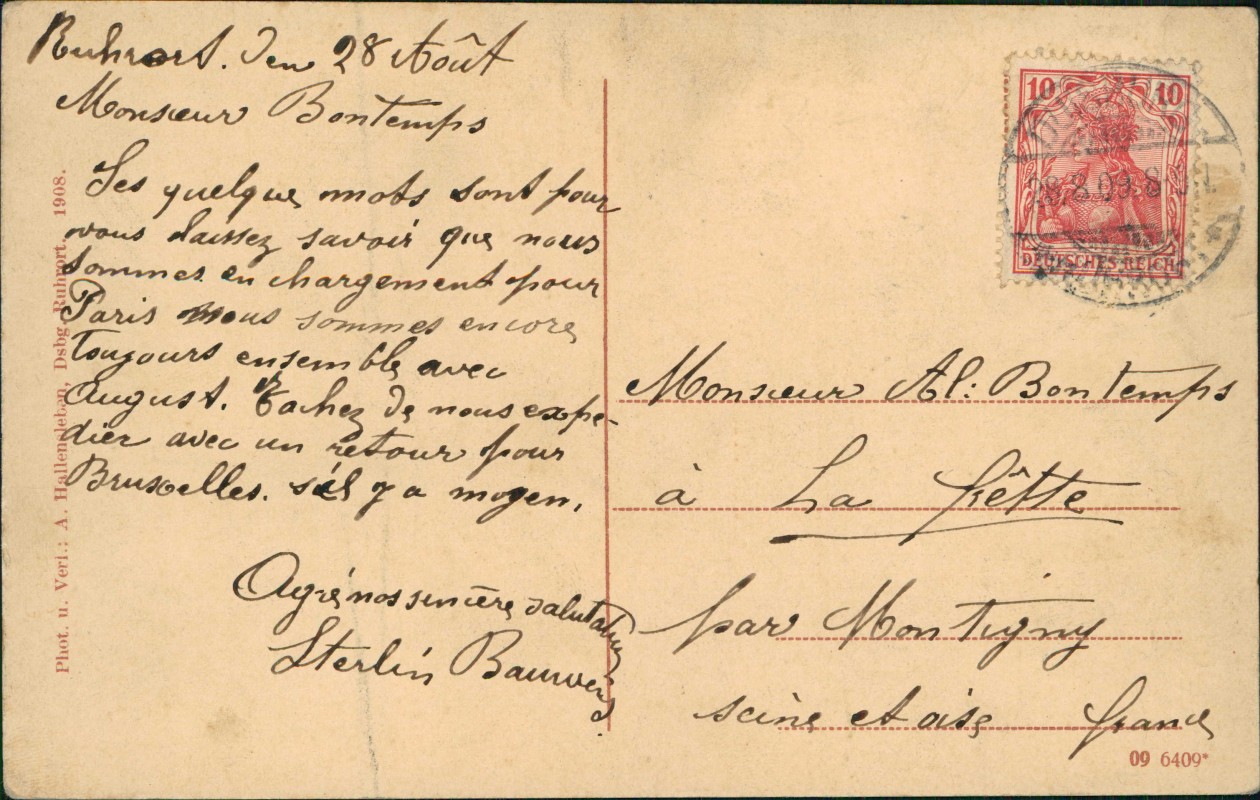 Ruhrort. den 28 Août
Monsieur Bontemps
Ses quelque mots sont pour
vous laissez savoir que nous
sommes en chargement pour
Paris nous sommes encore
tougours ensemble avec
August. Tachez de nous expe-
dier avec un retour pour
Bruxelles. s'il y a moyen.
Agré nos sincère salutation
Sterlin Bauwens
Phot. u. Verl.: A. Hallensleben, Dsbg-Ruhrort. 1908.
10 10
28.8.09.8
DEUTSCHES REICH
Monsieur Al: Bontemps
à La frêtte
par Montigny
seine et oise france
09 6409*